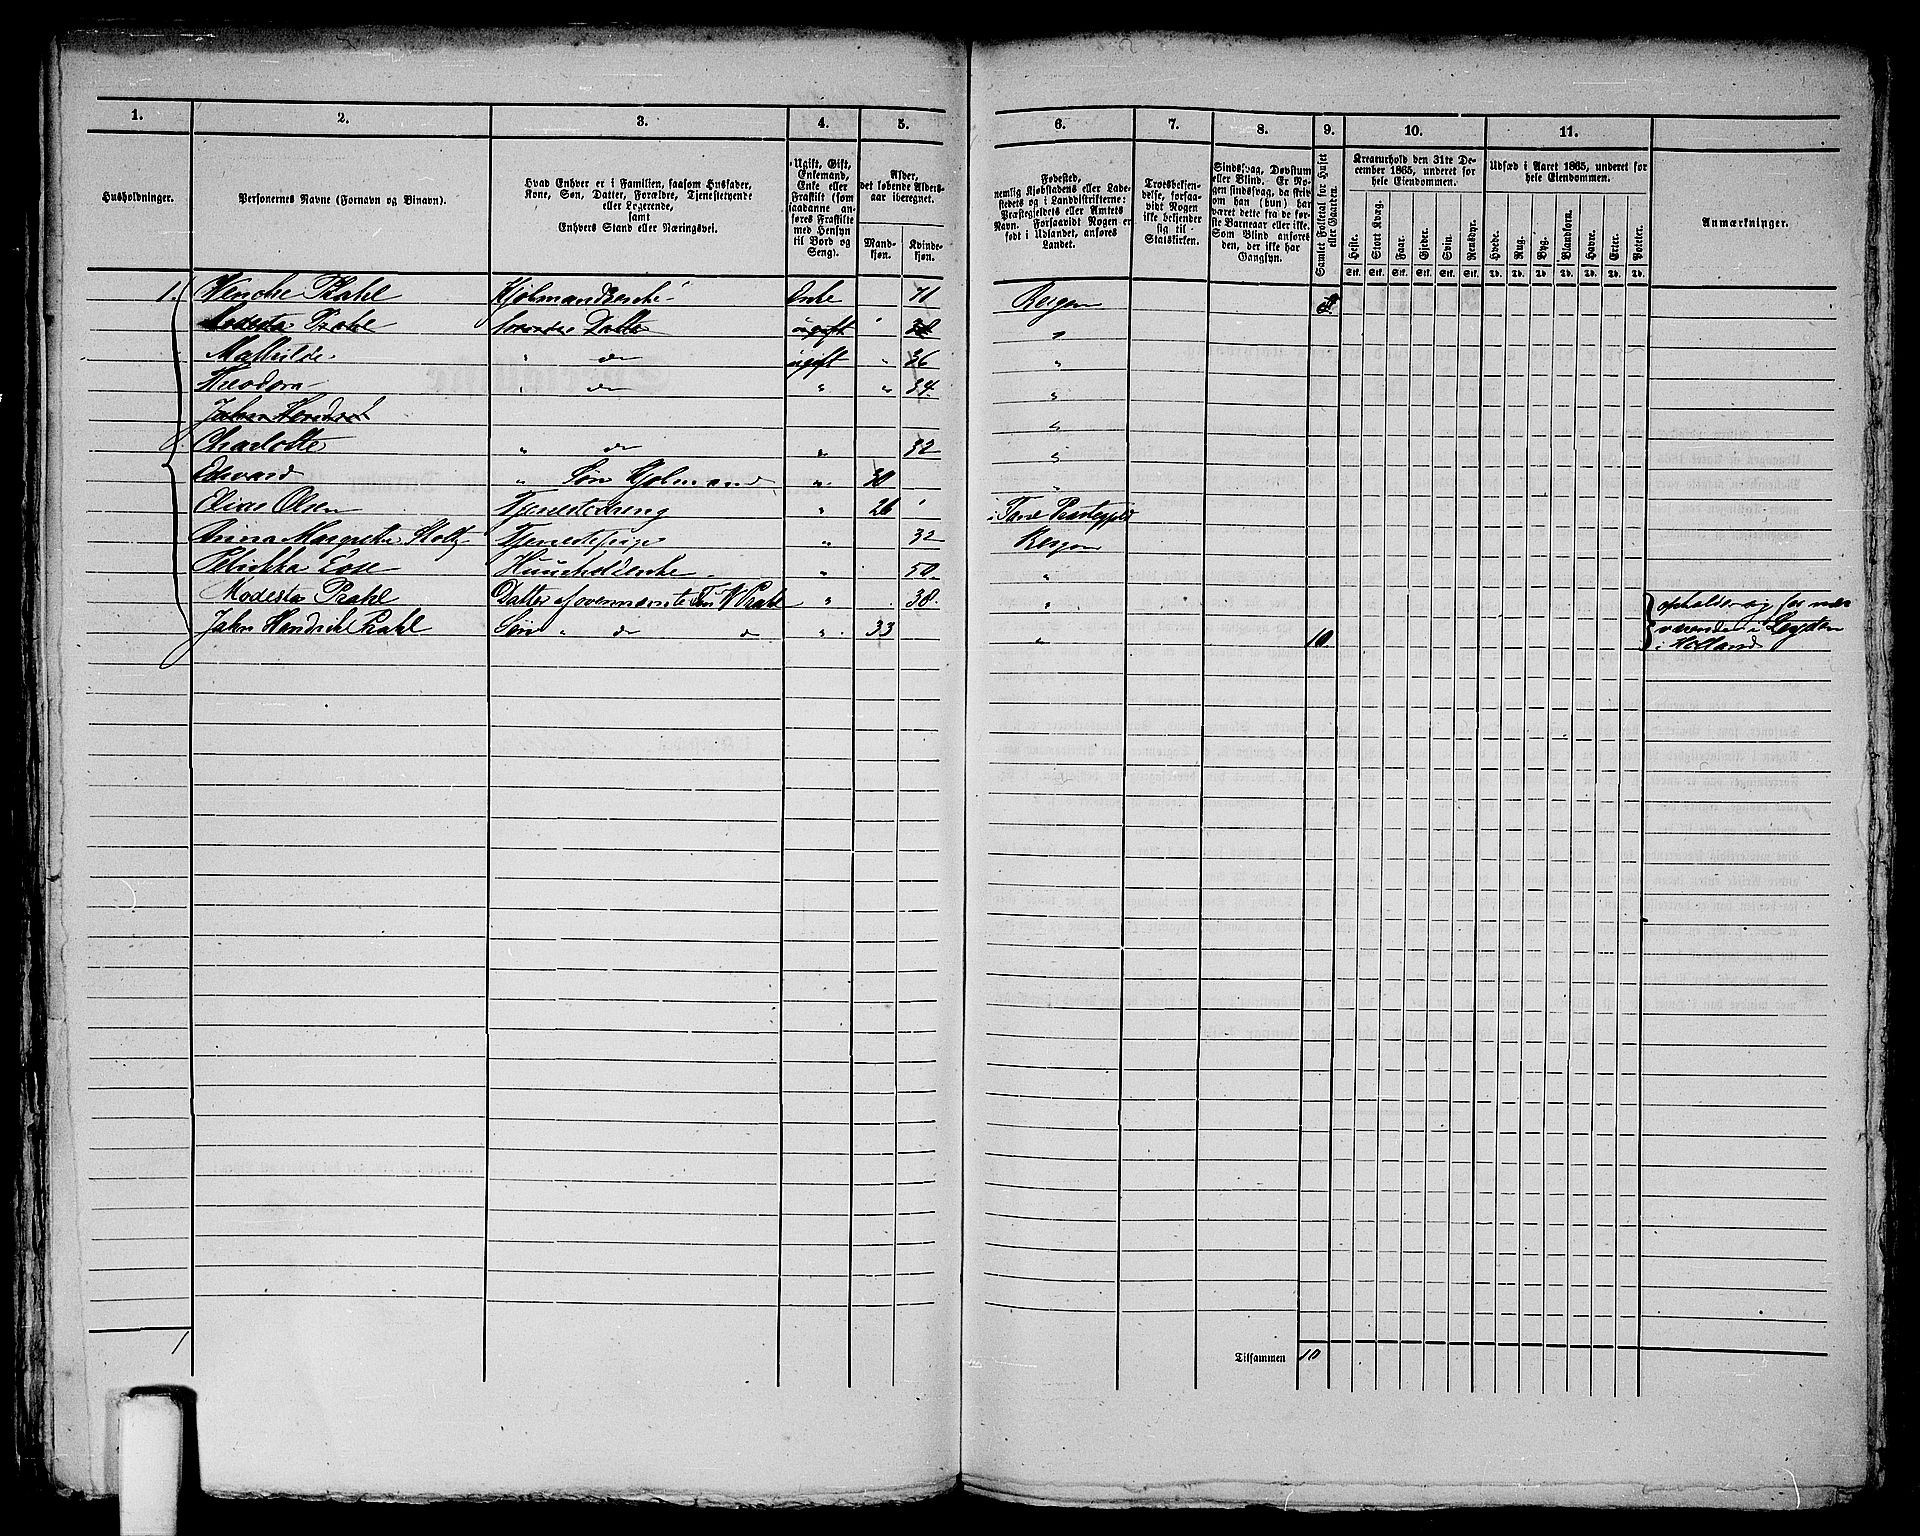 1. 2. 3. 4. 5. 6. 7. 8. 9. 10. 11.
Husholdninger.
Personernes Navne (Fornavn og Binavn).
Hvad Enhver er i Familien, saasom Husfader,
Kone, Søn, Datter, Forældre, Tjenestetyende
eller Logerende,
samt
Enhvers Stand eller Næringsvei.
Ugift, Gift,
Enkemand,
Enke eller
Fraskilt (som
saadanne an-
føres Fraskilte
med Hensyn
til Bord og
Seng).
Alder,
det løbende Alders-
aar iberegnet.
Mand-
kjøn.
Kvinde-
kjøn.
Fødested,
nemlig Kjøbstadens eller Lade-
stedets og i Landdistrikterne:
Præstegjeldets eller Amtets
Navn. Forsaavidt Nogen er
født i Udlandet, anføres
Landet.
Troesbekjen-
delse, forsaa-
vidt Nogen
ikke bekjender
sig til
Statskirken.
Sindssvag, Døvstum
eller Blind. Er No-
gen sindssvag, da skriv
om han (hun) har
været dette fra de før-
ste Barneaar eller ikke.
Som Blind anføres
den, der ikke har
Gangsyn.
Samlet Folketal for Huset
eller Gaarden.
Kreaturhold den 31te De-
cember 1865, underet for
hele Eiendommen.
Heste. Stort Kvæg. Faar. Gjeder. Svin. Rensdyr.
Stk. Stk. Stk. Stk. Stk. Stk.
Udsæd i Aaret 1865, underet for
hele Eiendommen.
Hvede. Rug. Byg. Blandkorn. Havre. Erter. Poteter.
Td. Td. Td. Td. Td. Td. Td.
Anmærkninger.
1. Wenche Prahl Kjøbmandsenke Enke 71 Bergen
Modesta Prahl Datter ugift 38 "
Mathilde " do ugift " 36 "
Theodora " do " " 34. "
Jahn Hendrik "
Charlotte " do " 32 "
Edvard " Søn Kjøbmand " 30 "
Eline Olsen Tjenestedreng " 26 " i Fane Præstegjeld
Anna Margrethe Stoltz Tjenestepige " 32 Bergen
" 50 "
Modesta Prahl Datter af ovennævnte W Prahl " 38. "
Jahn Hendrik Prahl Søn " do do " 33 " 10.
opholder sig for nær
værende i Leyden
i Holland
1
Tilsammen 10